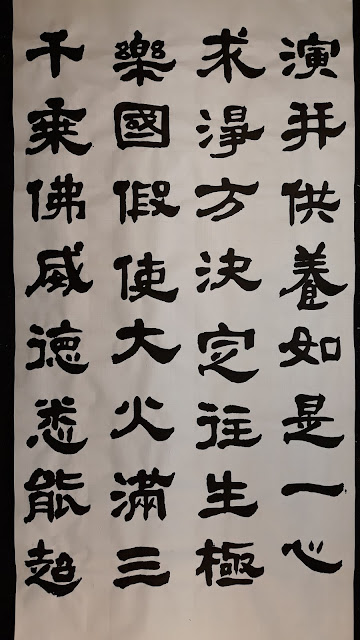 演并供養如是一心
求淨方決定往生極
樂國假使大火滿三
千乗佛威德悉能超